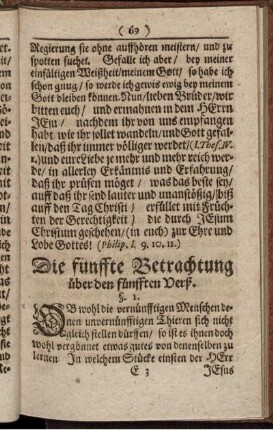 ( 69 )
Regierung sie ohne auffhören meistern/ und zu
spotten suchet. Gefalle ich aber/ bey meiner
einfältigen Weißheit/ meinem Gott/ so habe ich
schon gnug/ so werde ich gewis ewig bey meinem
Gott bleiben können. Nun/ lieben Brüder/ wir
bitten euch/ und ermahnen in dem HErrn
JEsu/ nachdem ihr von uns empfangen
habt wie ihr sollet wandeln/ und Gott gefal-
len/ daß ihr immer völliger werdet/ (1. Thess. IV.
1.) und eure Liebe je mehr und mehr reich wer-
de/ in allerley Erkäntnis und Erfahrung/
daß ihr prüfen möget/ was das beste sey/
auff daß ihr seyd lauter und unanstößig/ biß
auff den Tag Christi/ erfüllet mit Früch-
ten der Gerechtigkeit/ die durch JEsum
Christum geschehen/ (in euch) zur Ehre und
Lobe Gottes! (Philip. I. 9. 10. 11.)
Die fünffte Betrachtung
über den fünfften Verß.
§. 1.
OB wohl die vernünfftigen Menschen de-
nen unvernünfftigen Thieren sich nicht
gleich stellen dürffen/ so ist es ihnen doch
wohl vergönnet etwas gutes von denenselben zu
lernen In welchem Stücke einsten der HErr
E 3 JEsus